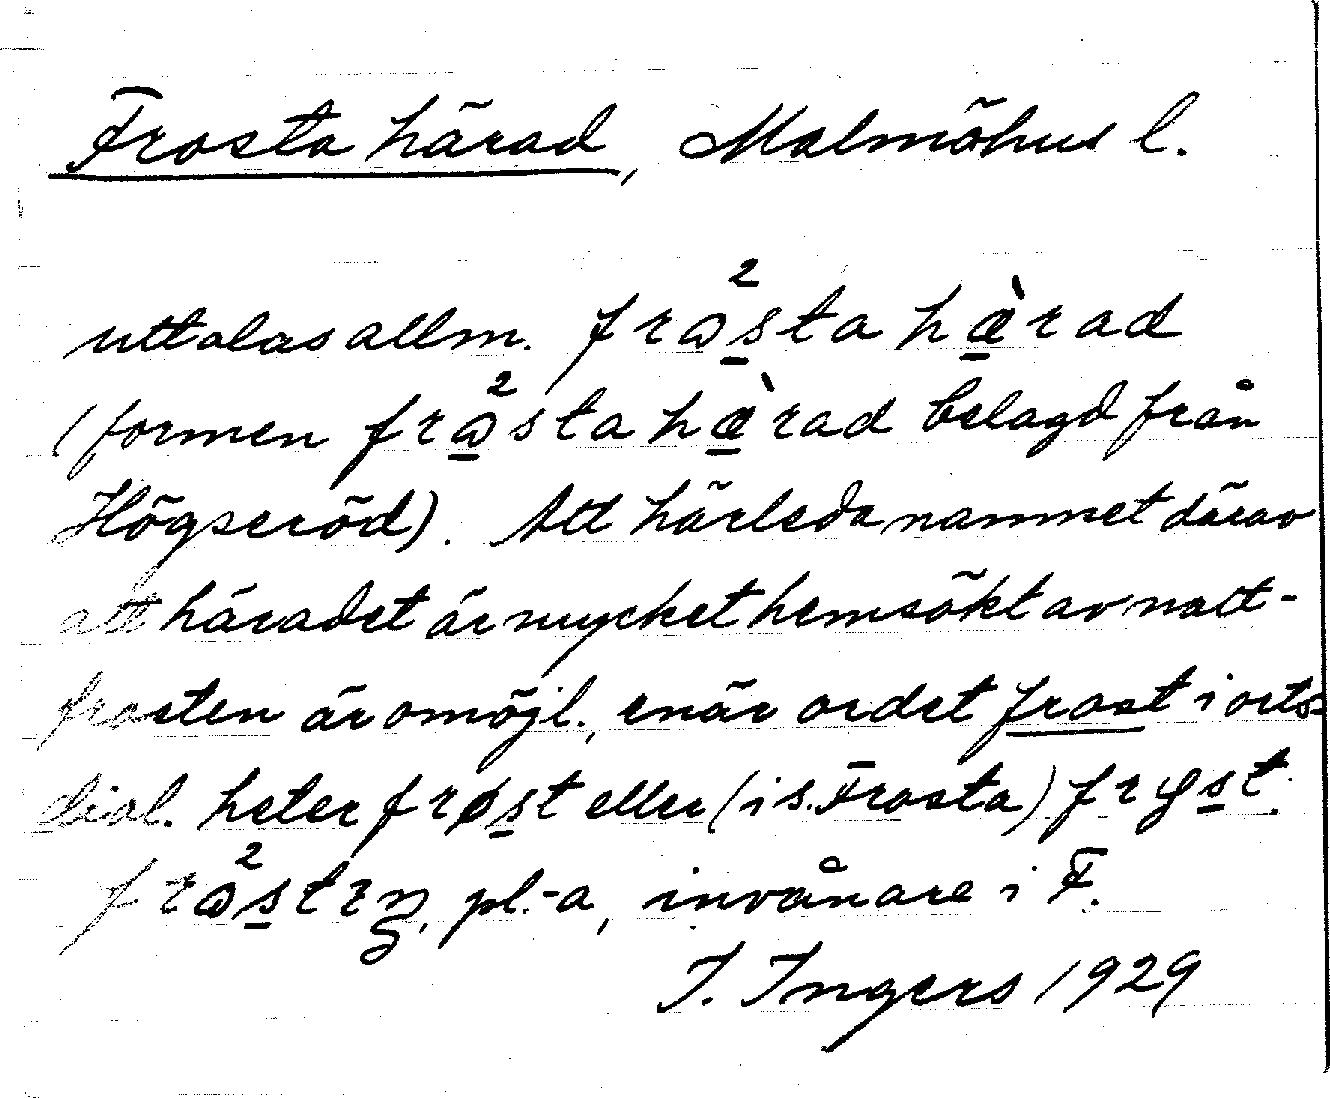 Frosta härad, Malmöhus l.
uttalas allm. frɷ²s̲ta hæ̲̀rad
(formen frɷ̲²sta hæ̲̀rad belagd från
Högseröd). Att härleda namnet därav
att häradet är mycket hemsökt av natt-
frosten är omöjl., enär ordet frost i orts-
dial. heter frøs̲t eller (i s. Frosta) frꭒs̲t.
frɷ²s̲trɳ, pl. -a, invånare i F.
I. Ingers 1929